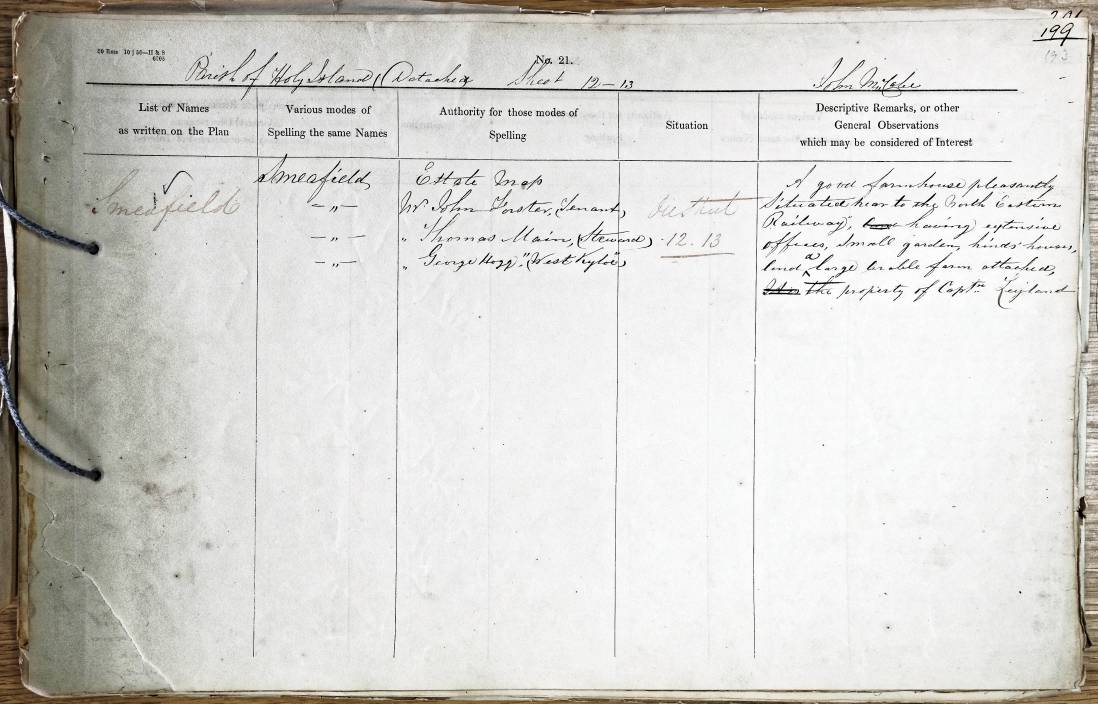 199
193
No. 21.
Parish of Holy Island (Detached Sheet 12-13
List of Names
as written on the Plan
Various modes of
Spelling the same Names
Authority for those modes of
Spelling
Situation
Descriptive Remarks, or other
General Observations
which may be considered of Interest
Smeafield
Smeafield
-„-
-„-
-„-
Estate Map
Mr. John Forster, (Tenant,
„ Thomas Main, (Steward)
„ George Hogg, "(West Kyloe")
12.13
A good farmhouse pleasantly
situated near to the North Eastern
Railway, having extensive
offices, small garden, hinds' houses,
and a large arable farm attached,
the property of Captn. Leyland